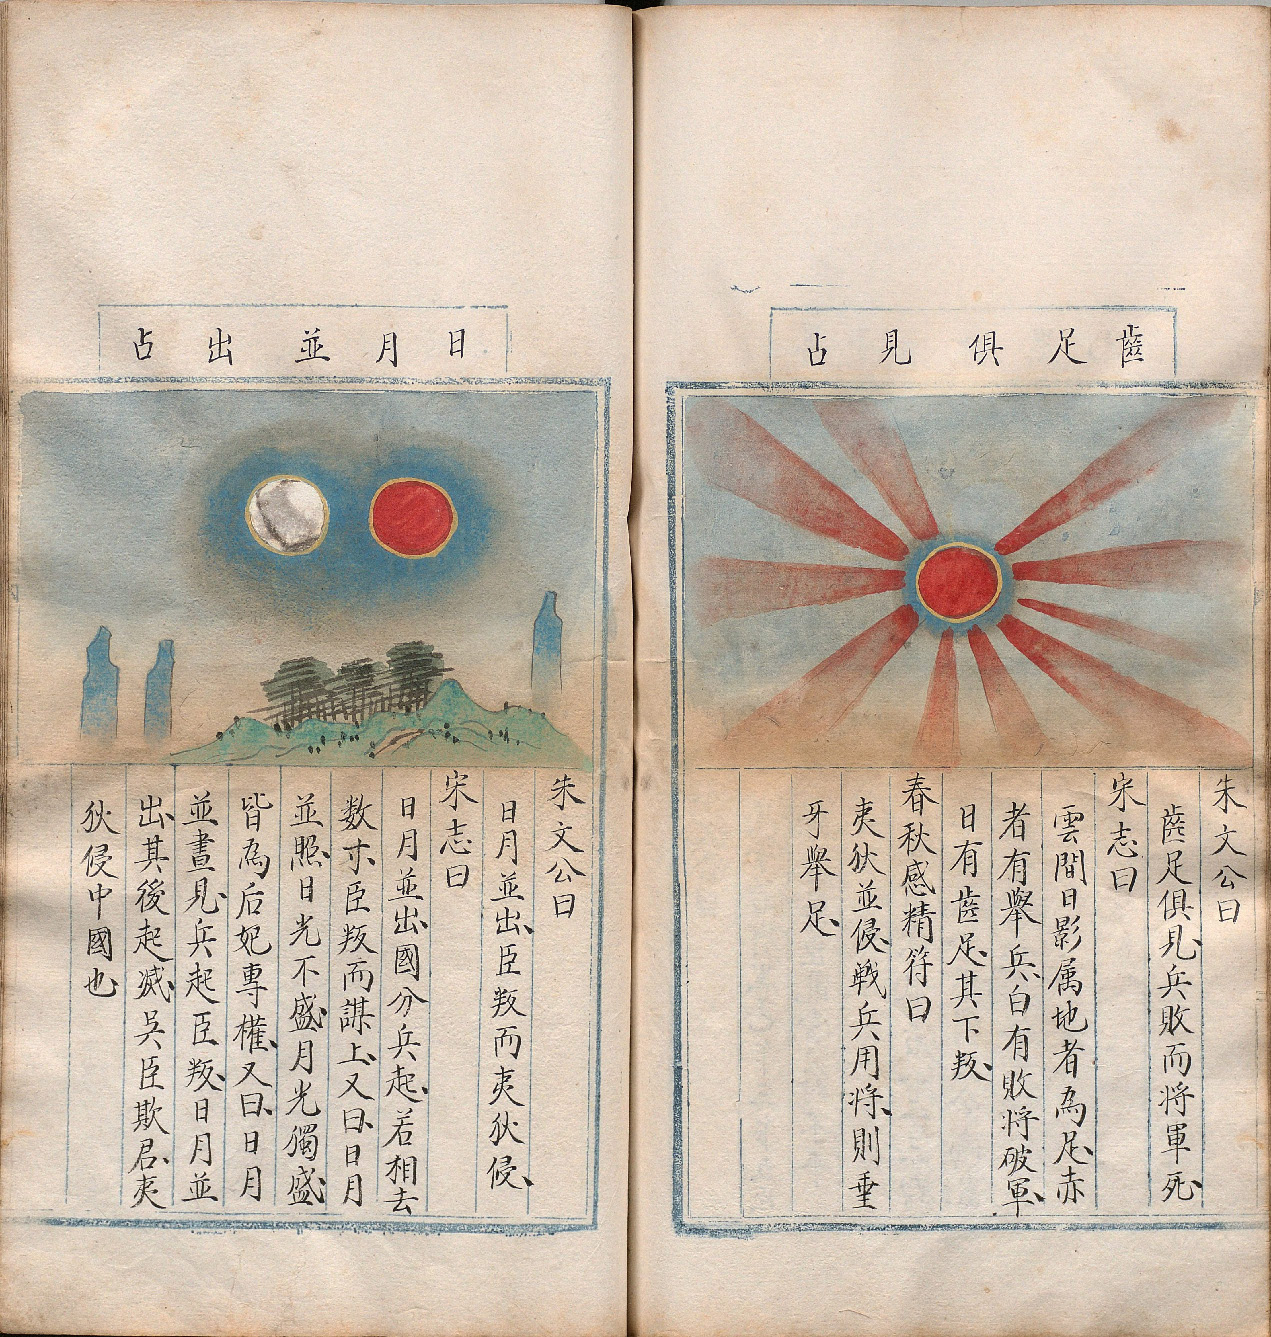 齒足俱見占
朱文公曰
齒足俱見兵敗而將軍死
宋志曰
雲間日影属地者為足赤
者有舉兵白有敗将破軍
日有齒足其下叛
春秋感精符曰
夷狄並侵戦兵用将則垂
牙舉足
日月並出占
朱文公曰
日月並出臣叛而夷狄侵
宋志曰
日月並出國分兵起若相去
数寸臣叛而謀上又曰日月
並照日光不盛月光獨盛
皆為后妃專權又曰日月
並晝見兵起臣叛日月並
出其後起滅吳臣欺君夷
狄侵中國也